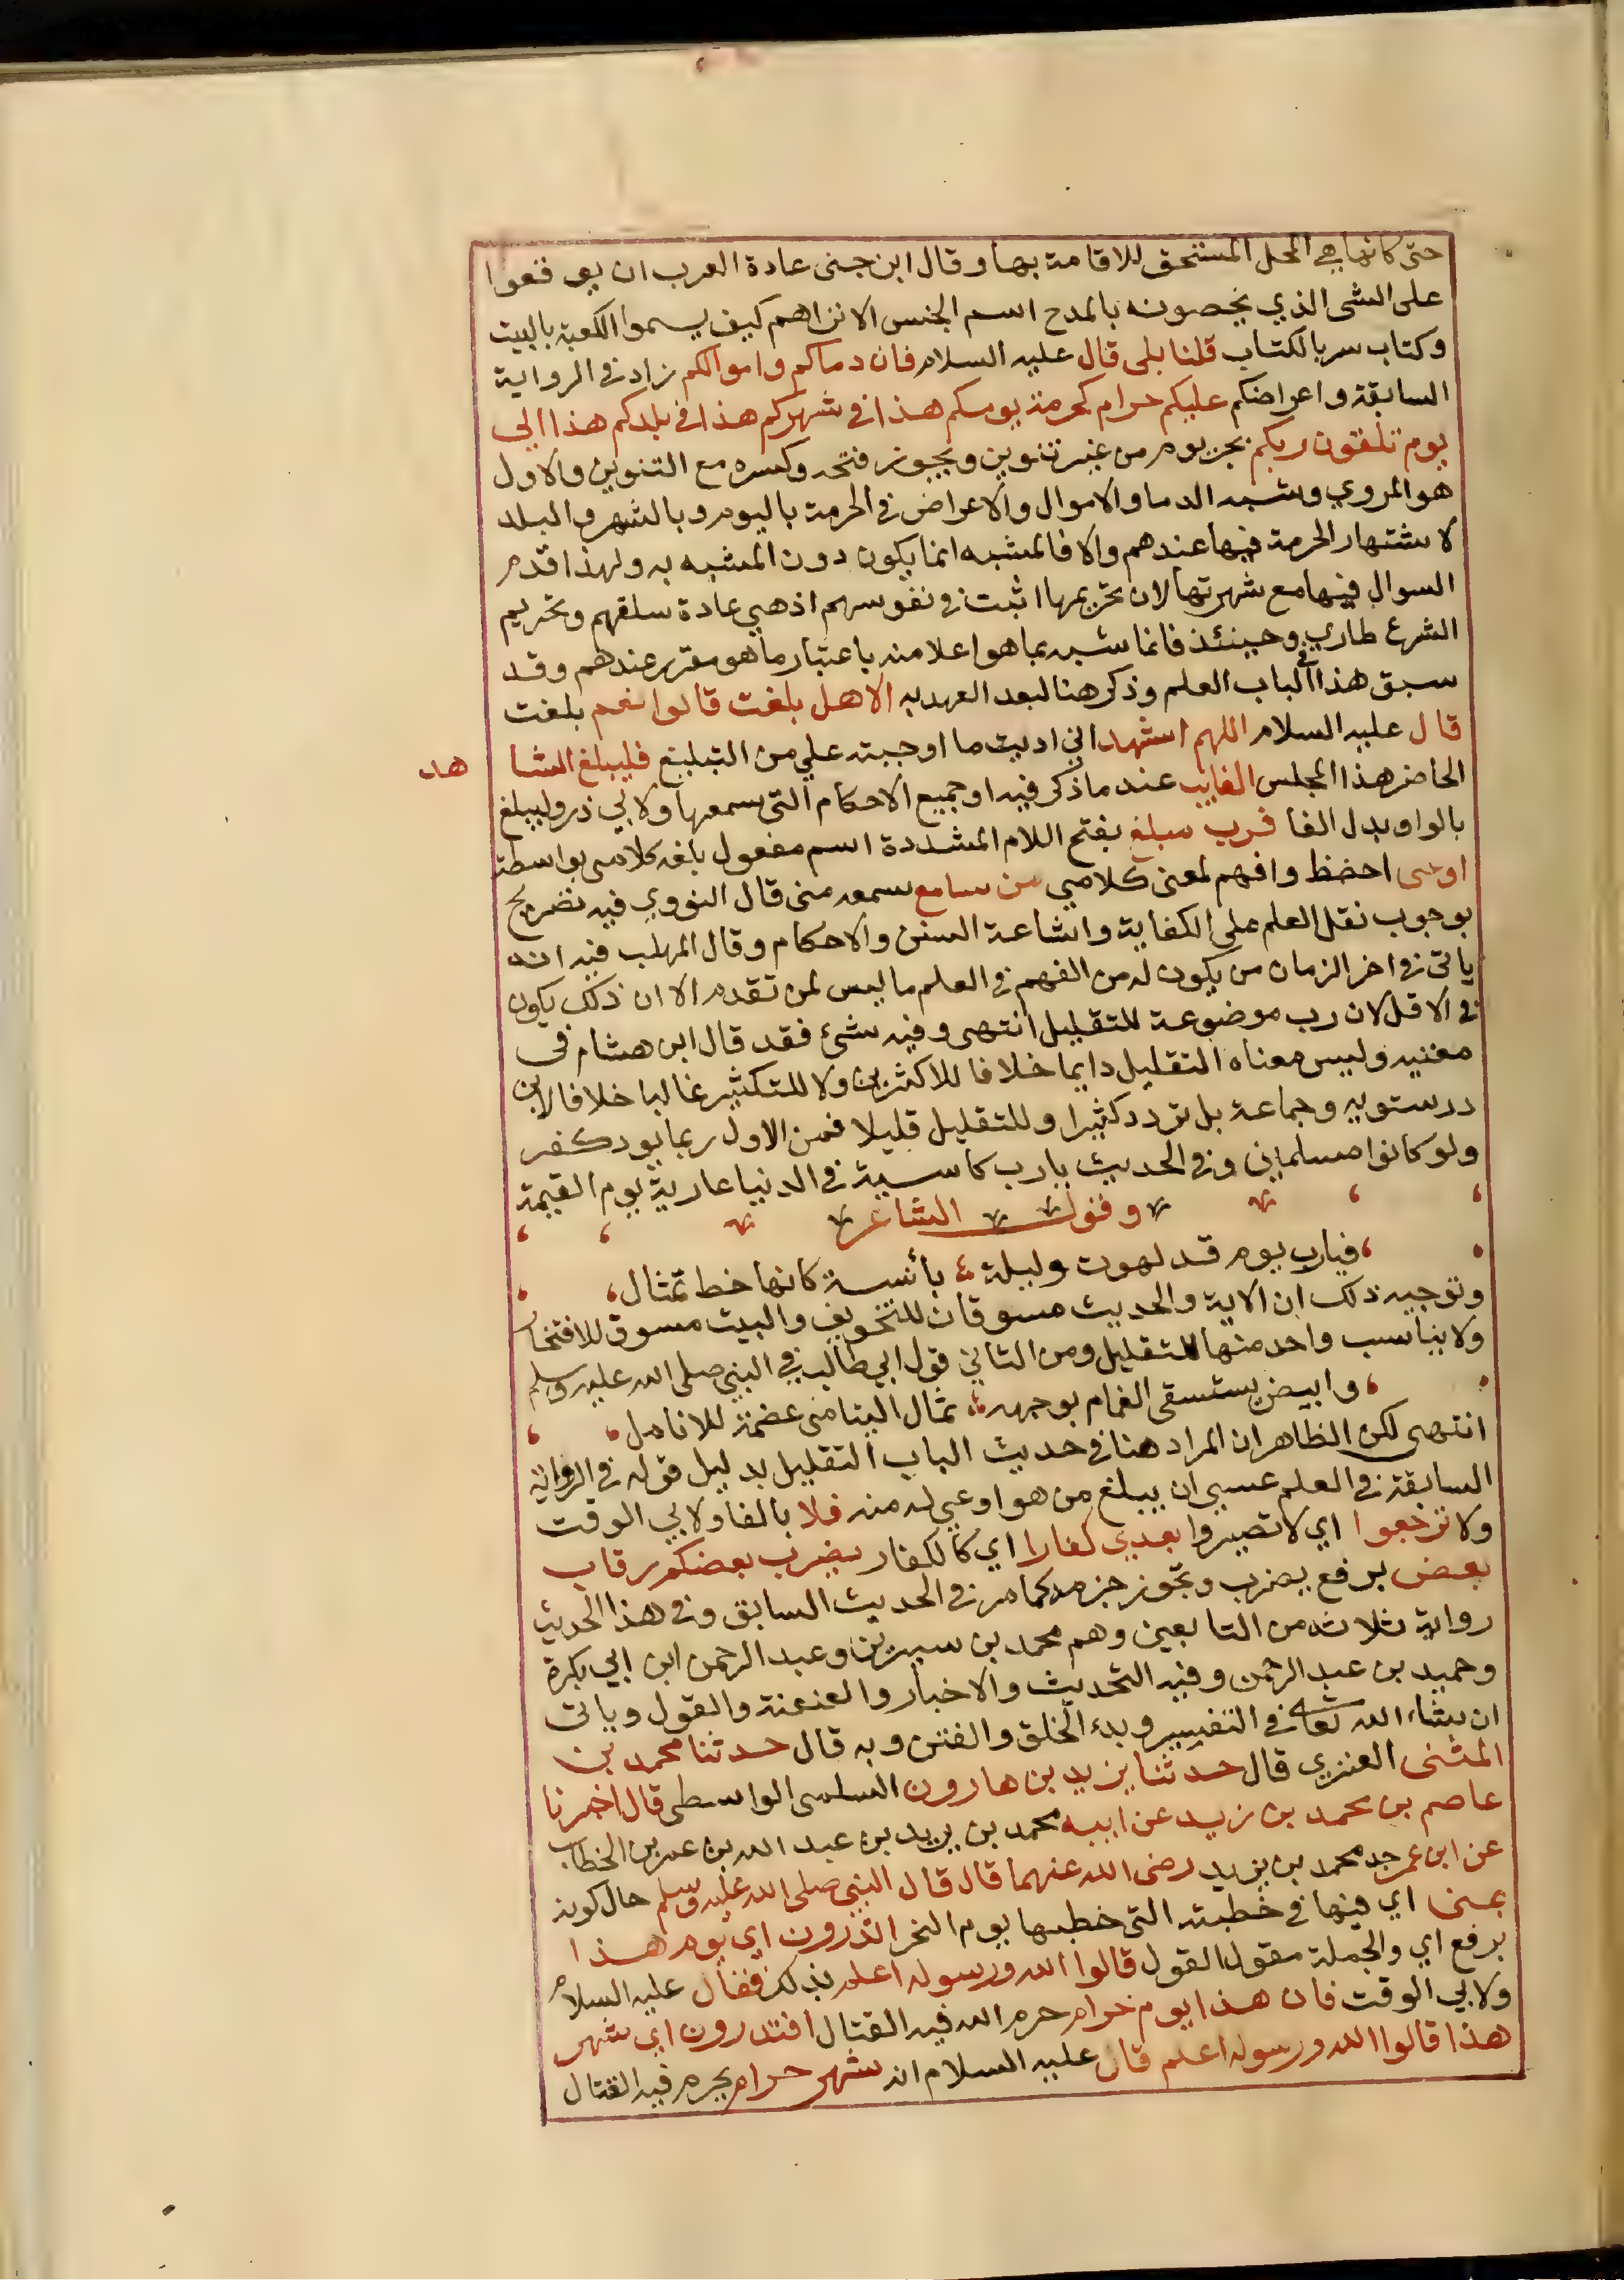 حتى كانها هي المحل المستحق للاقامة بها وقال ابن جنى عادة العرب ان يوقعوا
على الشى الذي يخصونه بالمدح اسم الجنس الا تراهم كيف يسموا الكعبة بالبيت
وكتاب سربالكتاب قلنا بلى قال عليه السلام فان دماكم واموالكم زاد في الرواية
السابقة واعراضكم عليكم حرام كحرمة يومكم هذا في شهركم هذا في بلدكم هذا الي
يوم تلقون ربكم بجر يوم من غير تنوين ويجوز فتحه وكسره مع التنوين والاول
هو المروي وشبه الدما والاموال والاعراض في الحرمة باليوم وبالشهر والبلد
لاشتهار الحرمة فيها عندهم والا فالمشبه انما يكون دون المشبه به ولهذا قدم
السوال فيها مع شهرتها لان تحريمها اثبت في نفوسهم اذ هي عادة سلفهم وتحريم
الشرع طاري وحينئذ فانما شبه بما هو اعلا منه باعتبار ما هو مقرر عندهم وقد
سبق هذا في الباب العلم وذكر هنا لبعد العهد به الا هل بلغت قالوا نعم بلغت
قال عليه السلام اللهم اشهد اني اديت ما اوجبته علي من التبليغ فليبلغ الشا هد
الحاضر هذا المجلس الغايب عند ما ذكر فيه او جميع الاحكام التى سمعها ولابي ذر وليبلغ
بالواو بدل الفا فرب مبلغ بفتح اللام المشددة اسم مفعول بلغه كلامى بواسطة
اوعى احفظ وافهم لمعنى كلامي من سامع سمعه منى قال النووي فيه تصريح
بوجوب نقل العلم على الكفاية واشاعة السنن والاحكام وقال المهلب فيه انه
ياتى في اخر الزمان من يكون له من الفهم في العلم ما ليس لمن تقدم الا ان ذلك يكون
في الاقل لان رب موضوعة للتقليل انتهى وفيه شئ فقد قال ابن هشام فى
مغنيه وليس معناه التقليل دايما خلافا للاكثرين ولا للتكثير غالبا خلافا لابن
درستويه وجماعة بل ترد كثيرا وللتقليل قليلا فمن الاول ربما يود كفر
ولو كانوا مسلماني وفي الحديث يارب كاسية في الدنيا عارية يوم القيمة
وقول الشاعر
فيارب يوم قد لهوت وليلة بأنسة كانها خط تمثال
وتوجيه ذلك ان الاية والحديث مسوقان للتخويف والبيت مسوق للافتخار
ولا يناسب واحد منها للتقليل ومن الثاني قول ابي طالب في النبي صلى الله عليه وسلم
وابيض يستسقى الغمام بوجهه ثمال اليتامى عصمة للانامل
انتهى لكن الظاهر ان المراد هنا في حديث الباب التقليل بدليل قوله في الرواية
السابقة في العلم عسى ان يبلغ من هو اوعي له منه فلا بالفا ولابي الوقت
ولا ترجعوا اي لا تصيروا بعدي كفارا اي كالكفار يضرب بعضكم رقاب
بعض برفع يضرب وتجوز جزمه كما مر في الحديث السابق وفي هذا الحديث
رواية ثلاثة من التابعين وهم محمد بن سيرين وعبد الرحمن ابن ابي بكرة
وحميد بن عبد الرحمن وفيه التحديث والاخبار والعنعنة والقول وياتى
ان شاء الله تعالى في التفسير وبدء الخلق والفتن وبه قال حدثنا محمد بن
المثنى العنزي قال حدثنا يزيد بن هارون السلمى الواسطى قال اخبرنا
عاصم بن محمد بن زيد عن ابيه محمد بن يزيد بن عبد الله بن عمر بن الخطاب
عن ابن عمر جد محمد بن يزيد رضى الله عنهما قال قال النبي صلى الله عليه وسلم حال كونه
بمنى اي فيها في خطبته التى خطبها يوم النحر اتدرون اي يوم هذا
برفع اي والجملة مقول القول قالوا الله ورسوله اعلم بذلك فقال عليه السلام
ولابي الوقت فان هذا يوم حرام حرم الله فيه القتال افتدرون اي شهر
هذا قالوا الله ورسوله اعلم قال عليه السلام انه شهر حرام يحرم فيه القتال